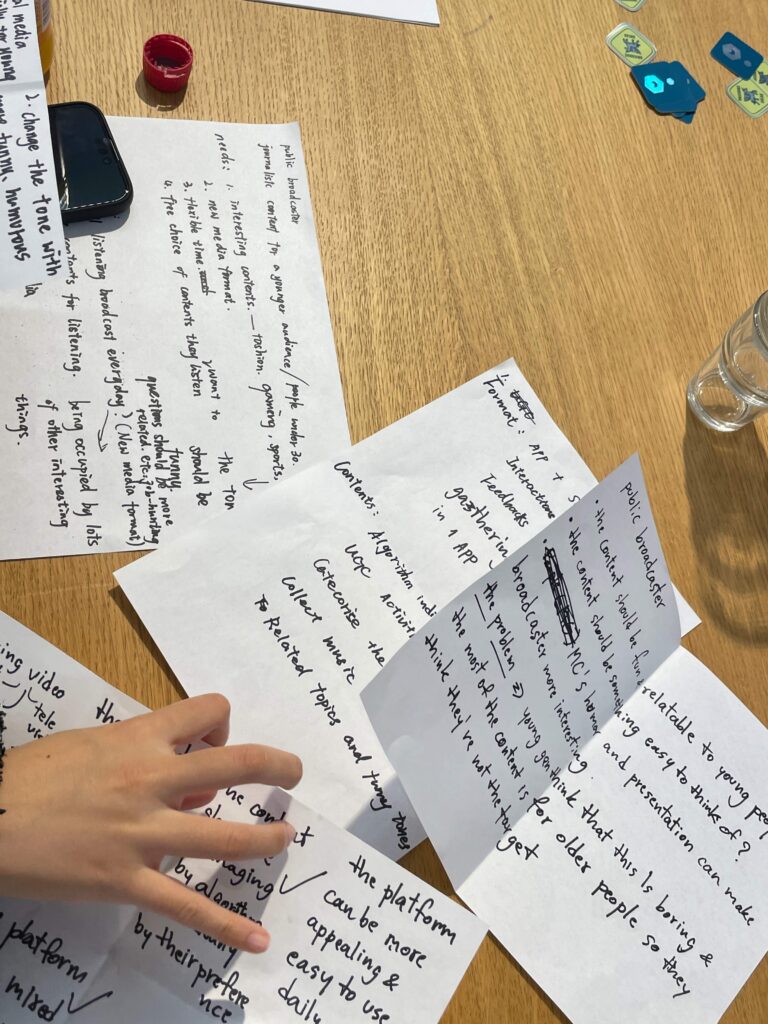 al media
2. change the tone with
more funny, humurous
public broadcaster
journalistic content for a younger audience / people under 30.
needs: 1. interesting contents. — fashion. gaming, sports.
2. new media format.
3. flexible time.
4. The choice of contents they listen
want to
the ton
should be
funny.
questions should be more
related. etc. job-hunting
listening broadcast everyday? (New media format)
contants for listening.
being occupied by lots
of other interesting
things.
1.
Format: APP +
Interactions
Feedbacks
gathering
in 1 APP
Contents: Algorithm
UGC Activit
Categorise the
Collect music
To Related topics and funny tones
public broadcaster
• the content should be fun, relatable to young peop
• the content should be something easy to think of?
MC's humor and presentation can make
broadcaster more interesting.
the problem ⇒ young gen think that this is boring &
the most of the content is for older people so they
think they've not the target
ing video
tele
the
by algorithm
by their prefere
nce
the platform
can be more
appealing &
easy to use
daily
platform
mixed ✓